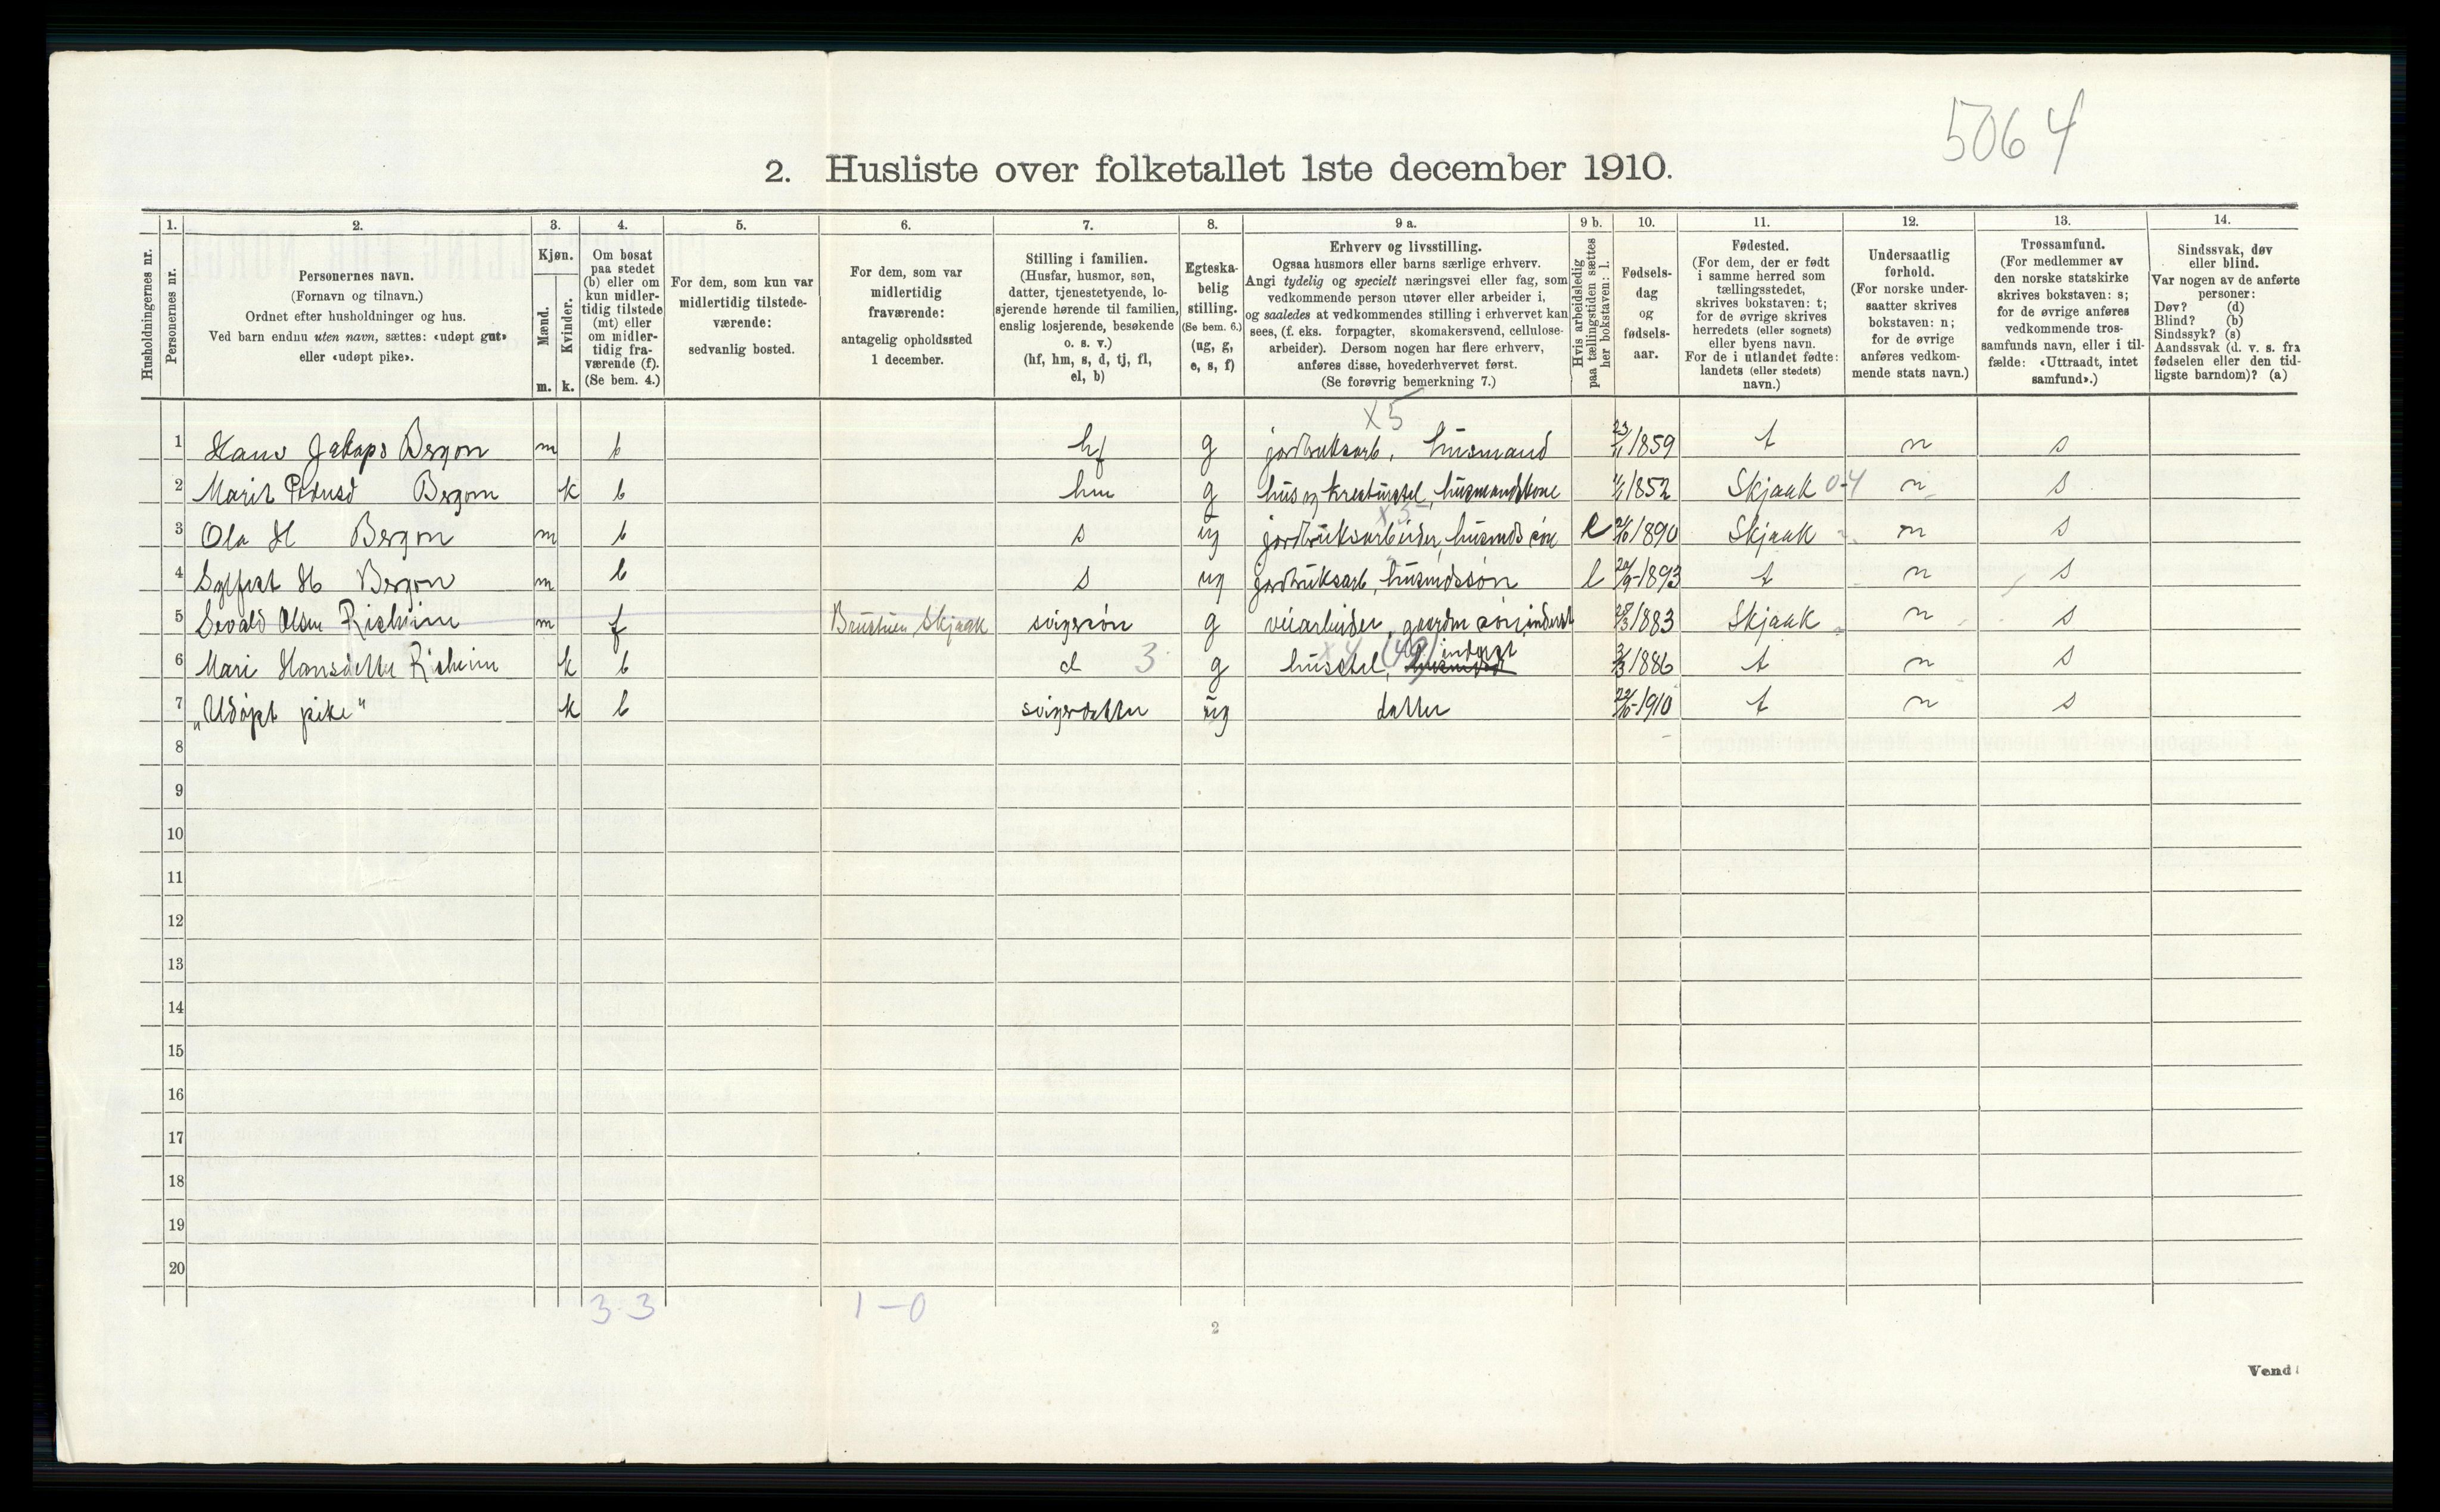 5064
2. Husliste over folketallet 1ste december 1910.
Husholdningernes nr.
1.
Personernes nr.
2.
Personernes navn.
(Fornavn og tilnavn.)
Ordnet efter husholdninger og hus.
Ved barn endnu uten navn, sættes: «udøpt gut»
eller «udøpt pike».
3.
Kjøn.
Mænd.
Kvinder.
m. k.
4.
Om bosat
paa stedet
(b) eller om
kun midler-
tidig tilstede
(mt) eller
om midler-
tidig fra-
værende (f).
(Se bem. 4.)
5.
For dem, som kun var
midlertidig tilstede-
værende:
sedvanlig bosted.
6.
For dem, som var
midlertidig
fraværende:
antagelig opholdssted
1 december.
7.
Stilling i familien.
(Husfar, husmor, søn,
datter, tjenestetyende, lo-
sjerende hørende til familien,
enslig losjerende, besøkende
o. s. v.)
(hf, hm, s, d, tj, fl,
el, b)
8.
Egteska-
belig
stilling.
(Se bem. 6.)
(ug, g,
e, s, f)
9 a.
Erhverv og livsstilling.
Ogsaa husmors eller barns særlige erhverv.
Angi tydelig og specielt næringsvei eller fag, som
vedkommende person utøver eller arbeider i,
og saaledes at vedkommendes stilling i erhvervet kan
sees, (f. eks. forpagter, skomakersvend, cellulose-
arbeider). Dersom nogen har flere erhverv,
anføres disse, hovederhvervet først.
(Se forøvrig bemerkning 7.)
9 b.
Hvis arbeidsledig
paa tællingstiden sættes
her bokstaven: l.
10.
Fødsels-
dag
og
fødsels-
aar.
11.
Fødested.
(For dem, der er født
i samme herred som
tællingsstedet,
skrives bokstaven: t;
for de øvrige skrives
herredets (eller sognets)
eller byens navn.
For de i utlandet fødte:
landets (eller stedets)
navn.)
12.
Undersaatlig
forhold.
(For norske under-
saatter skrives
bokstaven: n;
for de øvrige
anføres vedkom-
mende stats navn.)
13.
Trossamfund.
(For medlemmer av
den norske statskirke
skrives bokstaven: s;
for de øvrige anføres
vedkommende tros-
samfunds navn, eller i til-
fælde: «Uttraadt, intet
samfund».)
14.
Sindssvak, døv
eller blind.
Var nogen av de anførte
personer:
Døv? (d)
Blind? (b)
Sindssyk? (s)
Aandssvak (d. v. s. fra
fødselen eller den tid-
ligste barndom)? (a)
x 5
1 Hans Jakops Bergom m b hf g jordbruksarb, husmand 1859 t n s
2 Marit Bergom k b hm g hus og kreaturstel, husmandskone 1852 Skjaak 0-4 n s
x 5
3 Ola H Bergom m b s ug jordbruksarbeider, husmds søn l 1890 Skjaak n s
4 H Bergom m b s ug jordbruksarb, husmdssøn l 1893 t n s
5 Sevald Olsen Risheim m f Skjaak svigersøn g veiarbeider, gaardm søn, inderst 1883 Skjaak n s
6 Mari Hansdatter Risheim k b d 3 g husstel, x4 inderst 1886 t n s
7 "Udøpt pike" k b svigerdatter ug datter 1910 t n s
8
9
10
11
12
13
14
15
16
17
18
19
20
3-3 1-0
2
Vend!